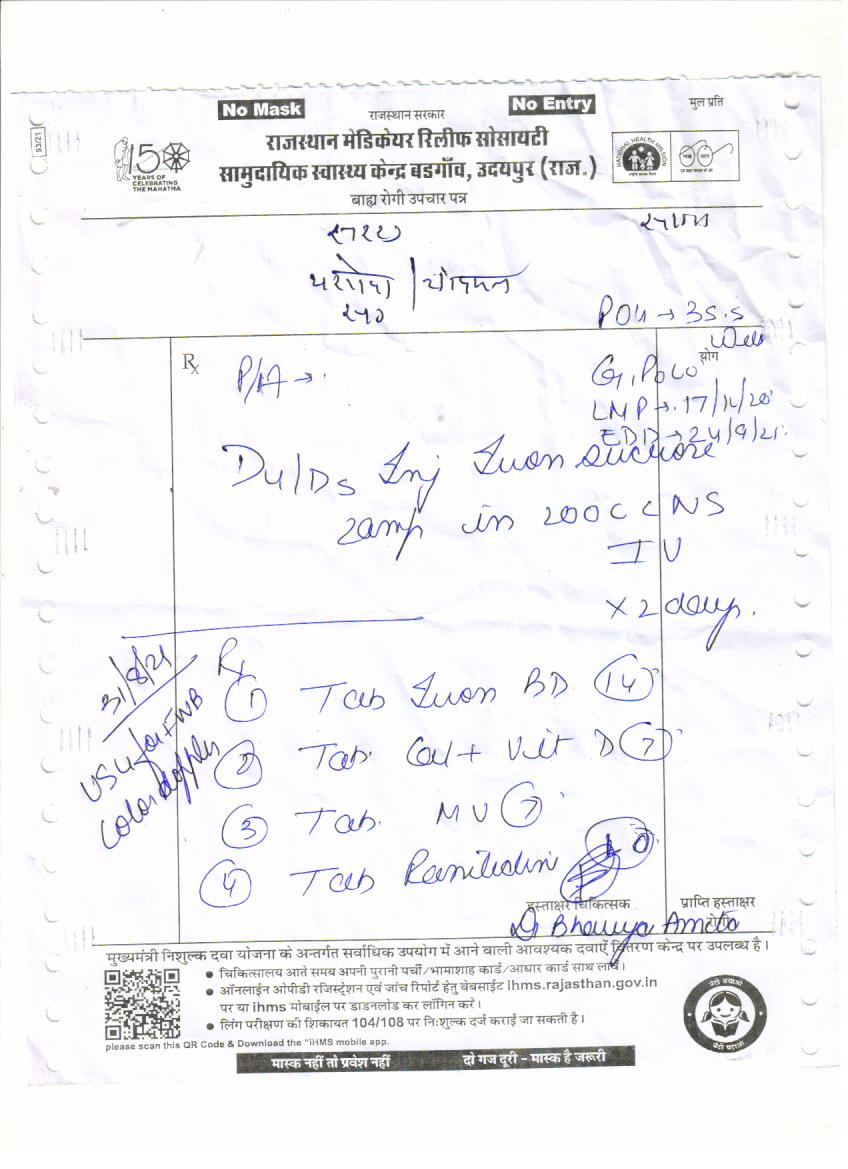 No Mask
राजस्थान सरकार
No Entry
मुल प्रति
93/21
राजस्थान मेडिकेयर रिलीफ सोसायटी
सामुदायिक स्वास्थ्य केन्द्र बडगाँव, उदयपुर (राज.)
बाह्य रोगी उपचार पत्र
150
YEARS OF
CELEBRATING
THE MAHATMA
NATIONAL HEALTH MISSION
POG → 35.5
Rx
P/A →
रोग
G1P0L0
LMP → 17/12/20
EDD → 24/9/21
Inj Iron sucrose
2amp in 200CC NS
IV
x 2 days.
31/8/21
USG for FWB
color doppler
Rx
1 Tab Iron BD 14
2 Tab. Cal + Vit D 7
3 Tab. MV 7
4 Tab Ranitidin 10
हस्ताक्षर चिकित्सक
प्राप्ति हस्ताक्षर
रोगी
Dr Bhavya Ameta
मुख्यमंत्री निशुल्क दवा योजना के अन्तर्गत सर्वाधिक उपयोग में आने वाली आवश्यक दवाऐं वितरण केन्द्र पर उपलब्ध है।
• चिकित्सालय आते समय अपनी पुरानी पर्ची/भामाशाह कार्ड/आधार कार्ड साथ लावें।
• ऑनलाईन ओपीडी रजिस्ट्रेशन एवं जांच रिपोर्ट हेतु बेबसाईट ihms.rajasthan.gov.in
पर या ihms मोबाईल पर डाडनलोड कर लॉगिन करे।
• लिंग परीक्षण की शिकायत 104/108 पर निःशुल्क दर्ज कराई जा सकती है।
please scan this QR Code & Download the "iHMS mobile app.
बेटी बचाओ
बेटी पढ़ाओ
मास्क नहीं तो प्रवेश नहीं
दो गज दूरी - मास्क है जरूरी